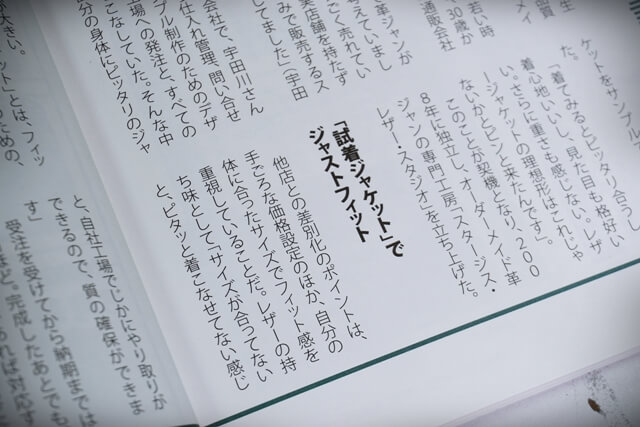 若い時
、30歳か
通販会社
革ジャンが
考えていまし
ごく売れてい
実店舗を持たず
みで販売するス
てました」(宇田
会社で、宇田川さん
仕入れ管理、問い合せ
プル制作のためのデザ
工場への発注と、すべての
こなしていた。そんな中
分の身体にピッタリのジャ
ケットをサンプル
た。
「着てみるとピッタリ合うし
着心地いいし、見た目も格好い
い。さらに重さも感じない。レザ
ージャケットの理想形はこれじゃ
ないかとピンと来たんです」。
このことが契機となり、200
8年に独立し、オーダーメイド革
ジャンの専門工房「スタージス・
レザー・スタジオ」を立ち上げた。
「試着ジャケット」で
ジャストフィット
他店との差別化のポイントは、
手ごろな価格設定のほか、自分の
体に合ったサイズでフィット感を
重視していることだ。レザーの持
ち味として「サイズが合ってない
と、ピタッと着こなせてない感じ
大きい。
ット」とは、フィッ
ための、
と、自社工場でじかにやり取りが
できるので、質の確保ができま
す」
受注を受けてから納期までは
ほど。完成したあとでも
あれば対応す